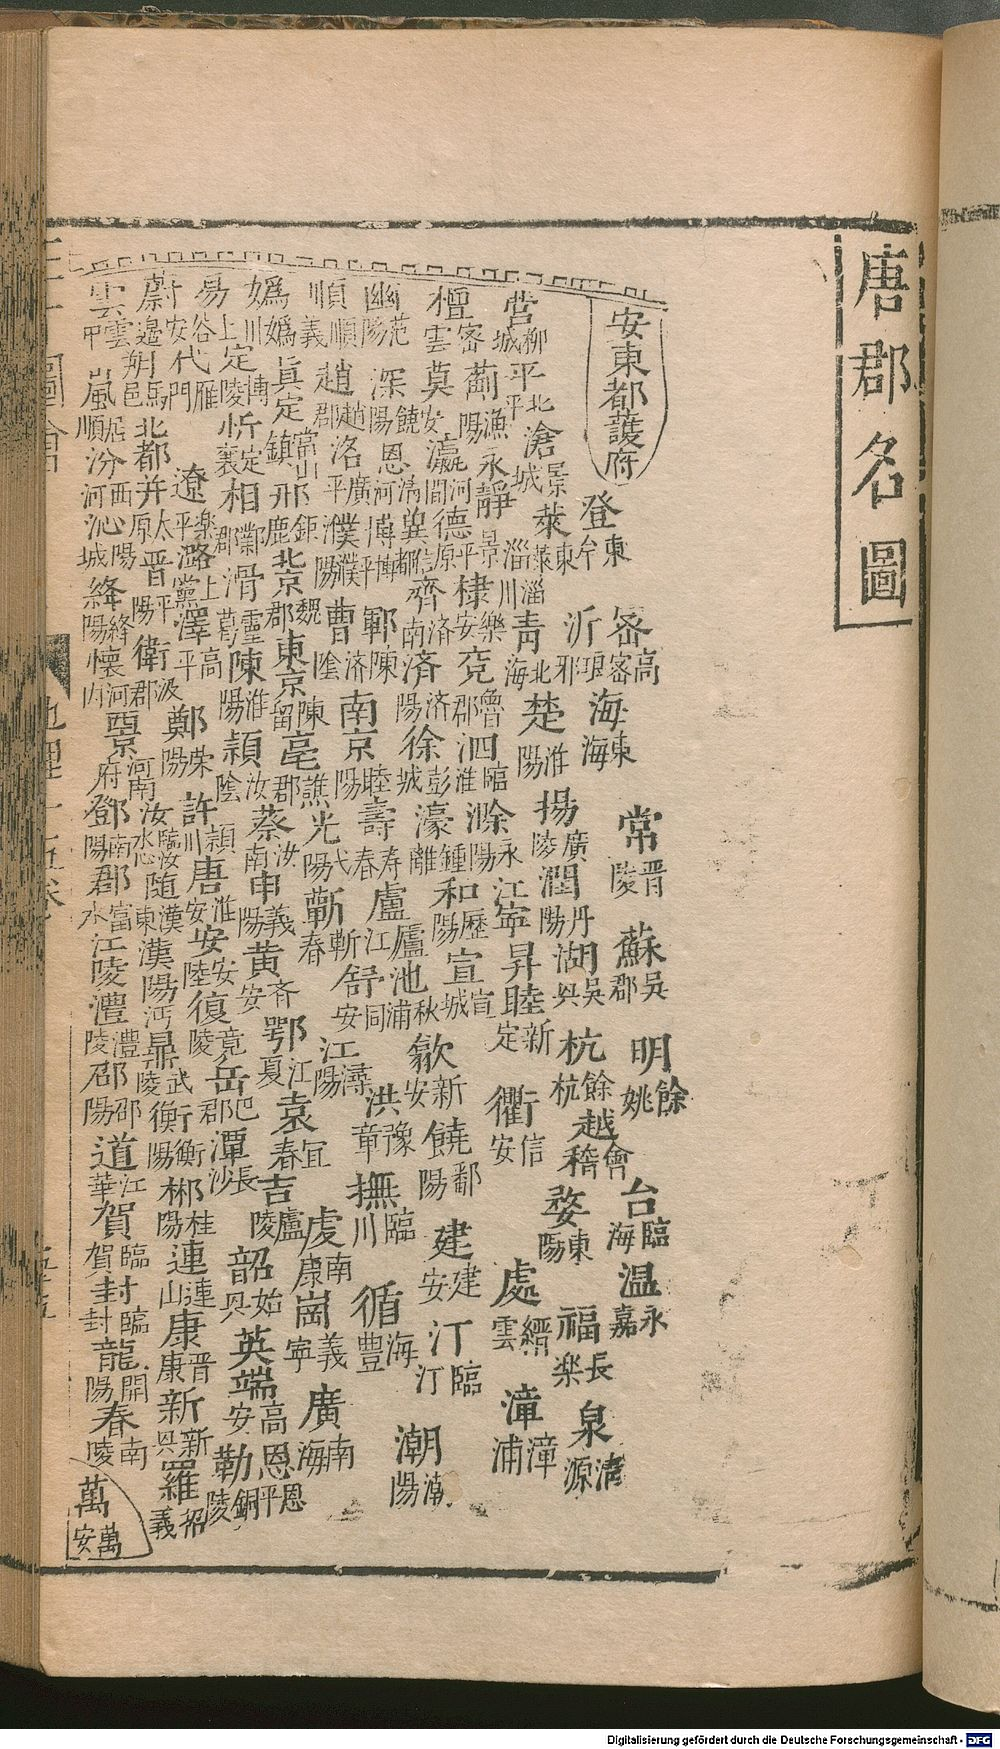 唐郡名圖
安東都護府
營柳城 平北平 滄景城 萊東萊 登東牟
密高密 沂琅邪 青北海 淄淄川 棣樂安
海東海 楚淮陽 兗魯郡 泗臨淮
常晉陵 揚廣陵 潤丹陽 滁永陽 江寧 昇
蘇吳郡 湖吳興 睦新定
明餘姚 杭餘杭 越會稽 衢信安
台臨海 婺東陽
温永嘉 處縉雲 福長樂
泉清源 漳漳浦
檀密雲 薊漁陽 莫 永靜 瀛河間 德平原 冀信都 齊濟南
済濟陽 徐彭城 濠鍾離 和歷陽 宣宣城 池秋浦 歙新安 饒鄱陽
建建安 汀臨汀 潮潮陽
幽范陽 深饒陽 恩清河 博博平 鄆 曹濟陰
南京睢陽 壽寿春 盧廬江 舒同安 江潯陽 洪豫章 撫臨川
循海豐
順順義 趙趙郡 洺廣平 濮濮陽
東京陳留 亳譙郡 光弋陽 蘄蘄春
嬀嬀川 真定 鎮常山 邢鉅鹿 北京魏郡
潁汝陰 蔡汝南 申義陽 黄齐安 鄂江夏 袁宜春 吉盧陵 虔南康
崗義寧 廣南海
易上谷 定博陵 忻定襄 相鄴郡 滑靈昌 陳淮陽
許潁川 唐淮安 安安陸 復竟陵 岳巴郡 潭長沙 韶始興 英 端高安 恩恩平
蔚安邊 代雁門 遼樂平 潞上黨 澤高平
鄭荥陽 汝臨汝 隨漢東 漢陽沔 鼎武陵 衡衡陽 郴桂陽 連連山 康晉康 新新興 勒銅陵 羅招義
雲雲中 朔馬邑 北都 并太原 晉平陽 衛汲郡
嵐 汾西河 沁陽城 絳絳陽 懷河內
西京河南府 鄧南陽 郡富水 江陵 澧澧陵 邵邵陽 道江華 賀臨賀 封臨封 龍開陽 春南陵
萬萬安